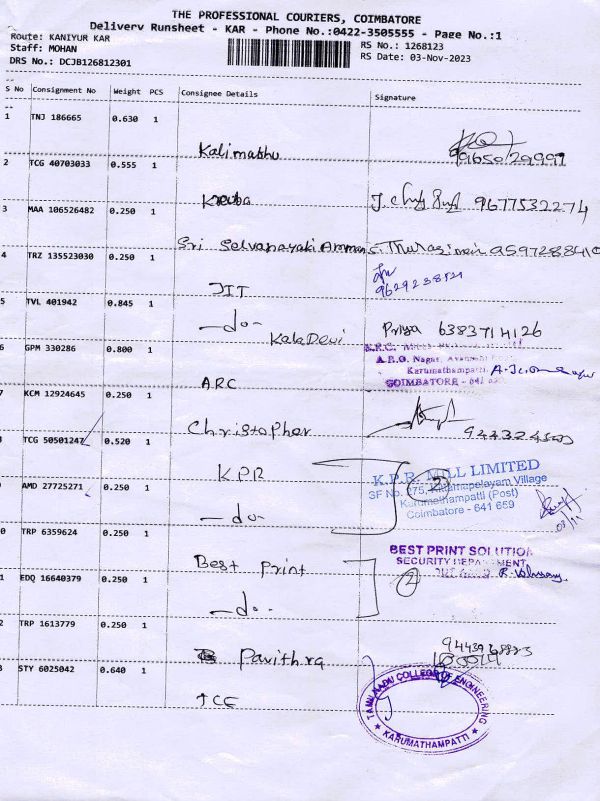 THE PROFESSIONAL COURIERS, COIMBATORE
Delivery Runsheet - KAR - Phone No.:0422-3505555 - Page No.:1
Route: KANIYUR KAR
Staff: MOHAN
DRS No.: DCJB126812301
RS No.: 1268123
RS Date: 03-Nov-2023
S No Consignment No Weight PCS Consignee Details Signature
1 TNJ 186665 0.630 1
Kalimabhu 9650729991
2 TCG 40703033 0.555 1
Kruba 9677532274
3 MAA 106526482 0.250 1
Sri Selvanayaki Amman
4 TRZ 135523030 0.250 1
JIT
5 TVL 401942 0.845 1
-do-
Kala Devi
Priya 6383714126
6 GPM 330286 0.800 1
ARC
A.R.O. Nagar,
Karumathampatti,
COIMBATORE - 641
7 KCM 12924645 0.250 1
Christopher
TCG 50501247 0.520 1
KPR
K.P.R. MILL LIMITED
SF No. 275, Kittampalayam Village
Karumathampatti (Post)
Coimbatore - 641 659
2
AMD 27725271 0.250 1
-do-
0 TRP 6359624 0.250 1
Best Print
BEST PRINT SOLUTION
SECURITY DEPARTMENT
2
1 EDQ 16640379 0.250 1
-do-
2 TRP 1613779 0.250 1
Pavithra
3 STY 6025042 0.640 1
TCE
TAMILNADU COLLEGE OF ENGINEERING
★ KARUMATHAMPATTI ★